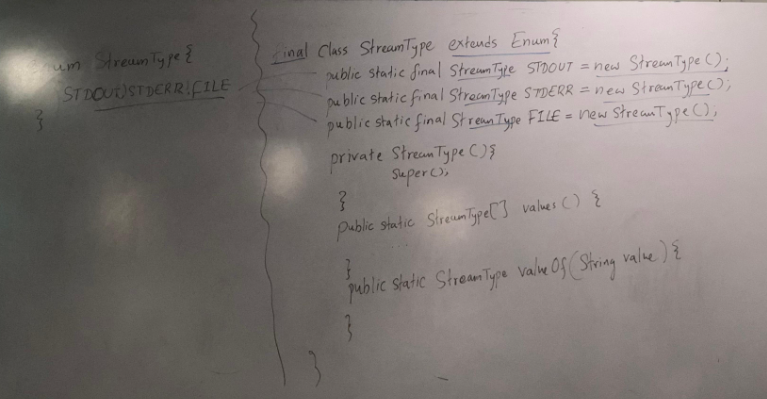 enum StreamType{
STDOUT,STDERR,FILE
}
final Class StreamType extends Enum{
public static final StreamType STDOUT = new StreamType();
public static final StreamType STDERR = new StreamType();
public static final StreamType FILE = new StreamType();
private StreamType(){
super();
}
public static StreamType[] values() {
}
public static StreamType valueOf(String value){
}
}